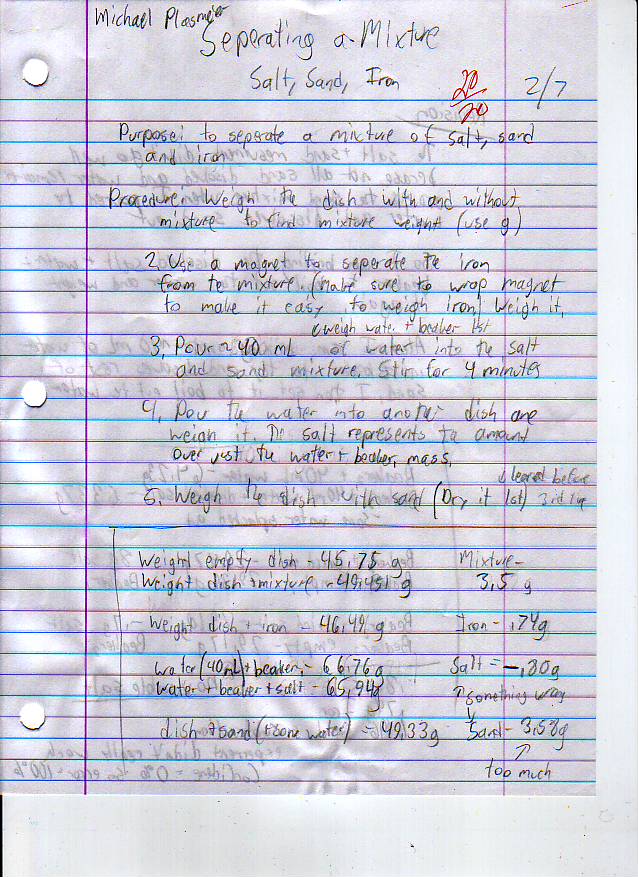 Michael Plasmeier
Seperating a Mixture
Salt, Sand, Iron
20/20
2/7
Purpose: to seperate a mixture of salt, sand
and iron
Procedure: Weigh the dish with and without
mixture to find mixture weight (use g)
2. Use a magnet to seperate the iron
from the mixture. (Make sure to wrap magnet
to make it easy to weigh iron) Weigh it.
weigh water + beaker 1st
3. Pour ≈ 40 mL of water into the salt
and sand mixture. Stir for 4 minutes
4. Pour the water into another dish and
weigh it. The salt represents the amount
over just the water + beaker mass.
cleared before
5. Weigh the dish with sand (Dry it 1st)
Weight empty dish - 45.75 g Mixture -
Weight dish + mixture - 49.451 g 3.5 g
Weight dish + iron - 46.49 g Iron - .74g
water (40mL) + beaker - 66.76 g Salt = -.80g
Water + beaker + salt - 65.94g ↑ something wrong
dish + sand (+ some water) = 49.33g Sand - 3.58g
↑
too much